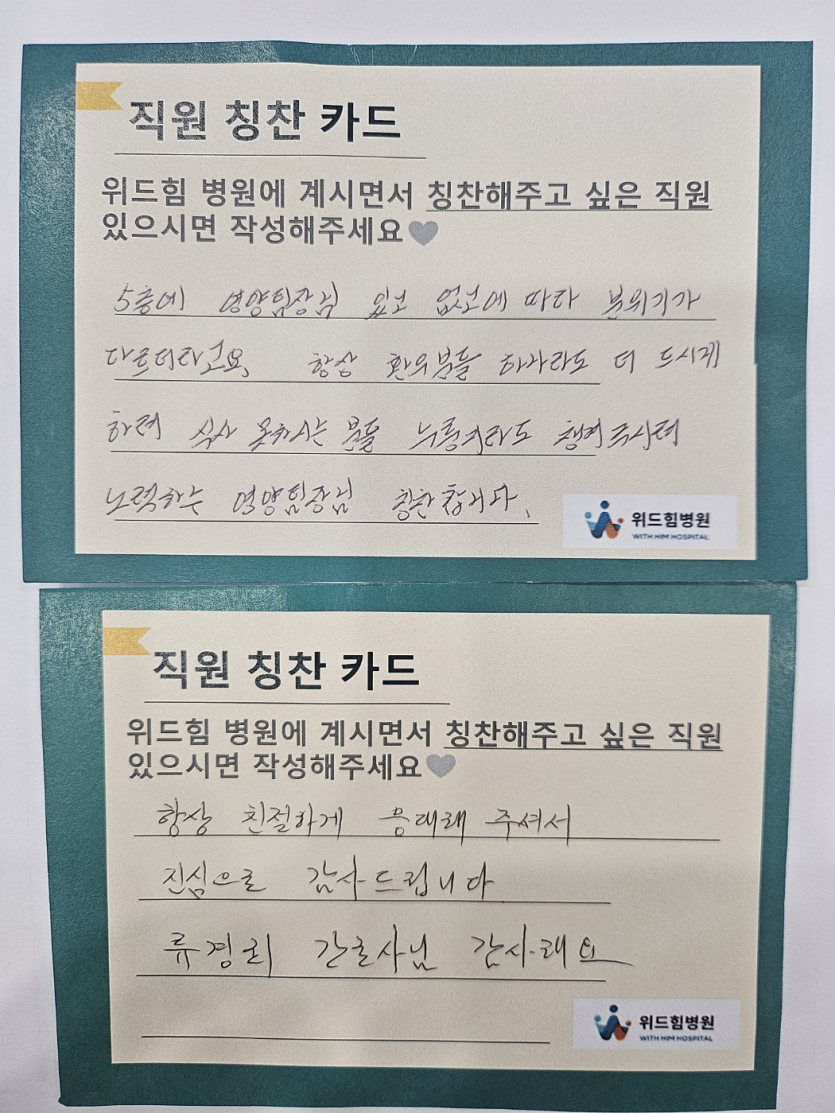 직원 칭찬 카드
위드힘 병원에 계시면서 칭찬해주고 싶은 직원
있으시면 작성해주세요
5층에 영양팀장님 있고 없고에 따라 분위기가
다르더라고요. 항상 환우분들 하나라도 더 드시게
하려 식사 못하시는 분들 누룽지라도 챙겨주시려
노력하는 영양팀장님 칭찬합니다.
위드힘병원
WITH HIM HOSPITAL
직원 칭찬 카드
위드힘 병원에 계시면서 칭찬해주고 싶은 직원
있으시면 작성해주세요
항상 친절하게 응대해 주셔서
진심으로 감사드립니다
류경리 간호사님 감사해요
위드힘병원
WITH HIM HOSPITAL